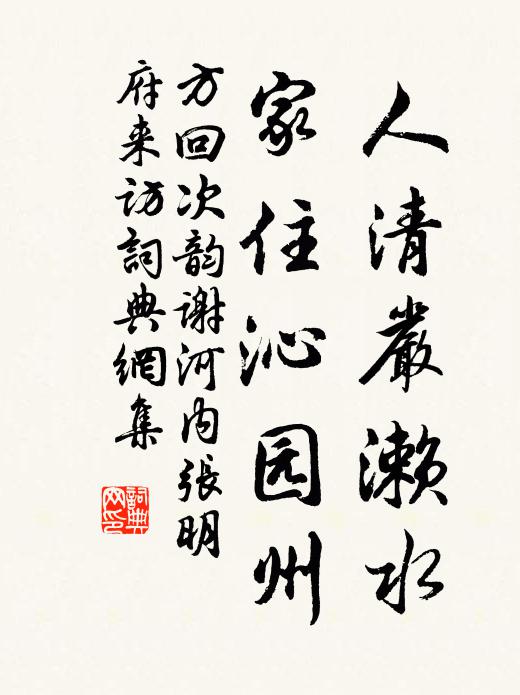 人清嚴濑水
家住沁园州
方回次韵谢河内張明
府来访詞典網集
詞典网印